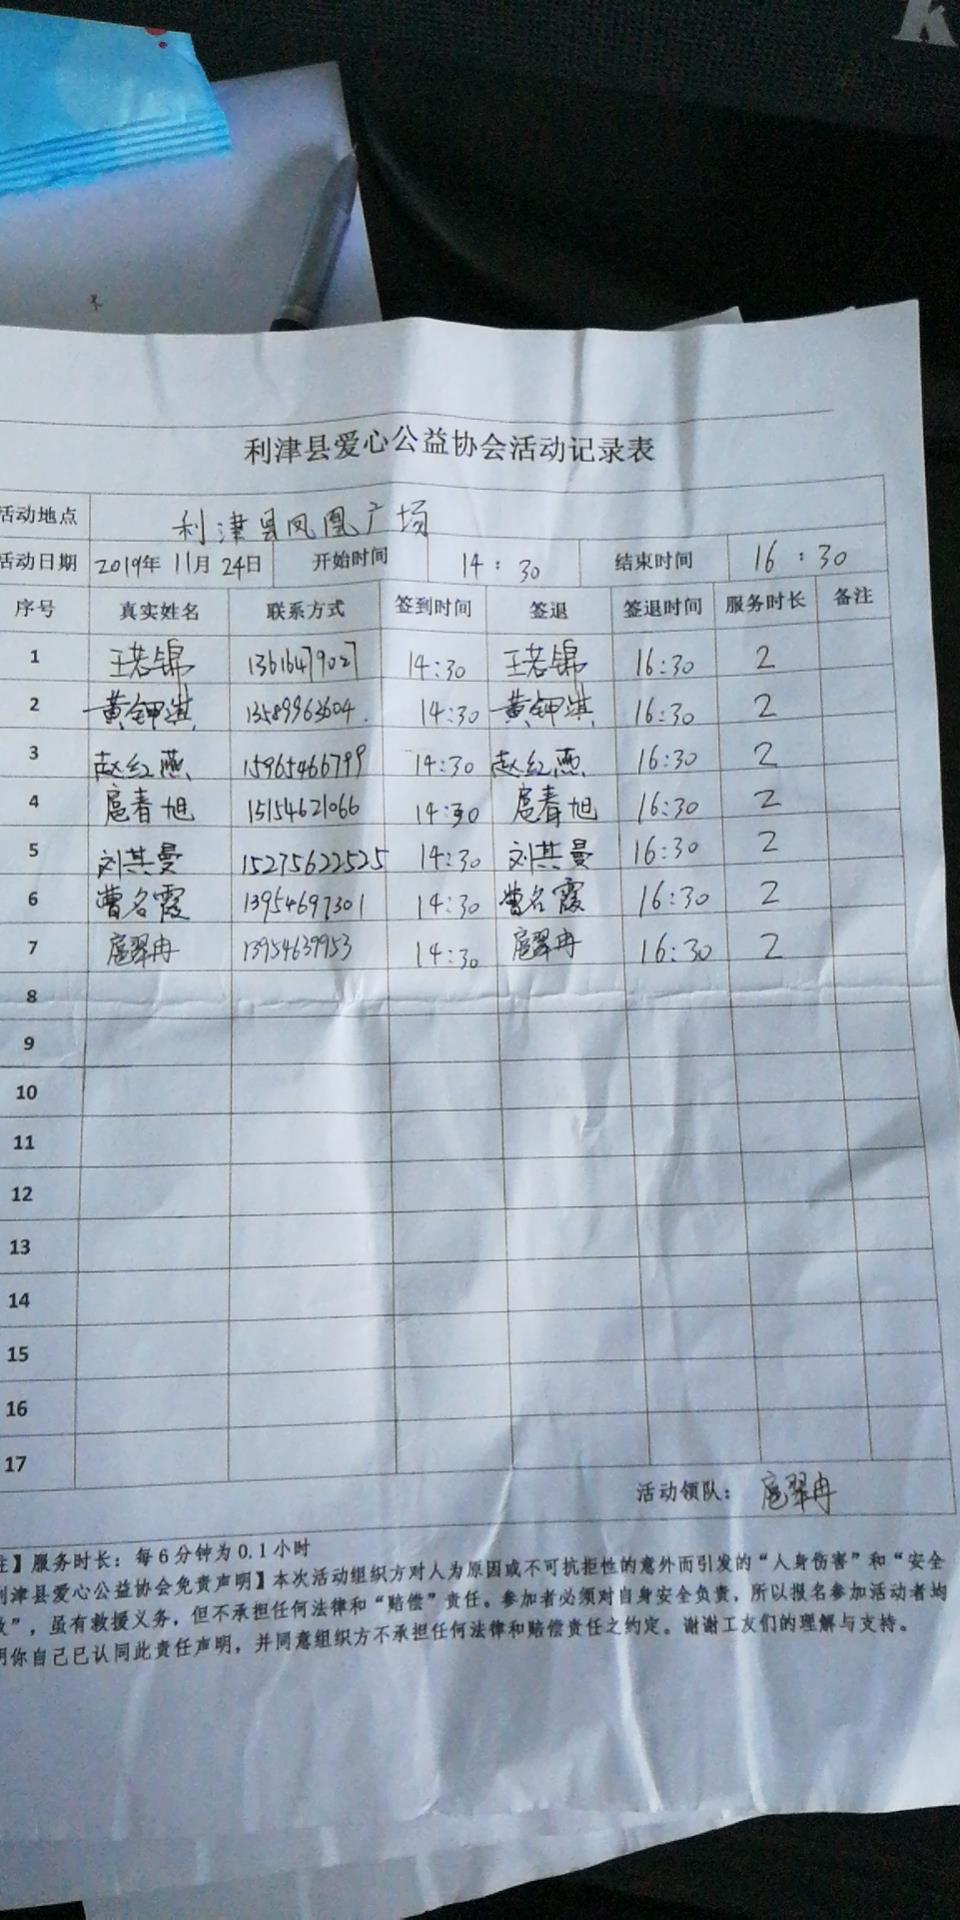 k
利津县爱心公益协会活动记录表
活动地点 利津县凤凰广场
活动日期 2019年 11月 24日 开始时间 14：30 结束时间 16：30
序号 真实姓名 联系方式 签到时间 签退 签退时间 服务时长 备注
1 王若锦 13616479027 14:30 王若锦 16:30 2
2 黄钾淇 13589963604 14:30 黄钾淇 16:30 2
3 赵红燕 15965466799 14:30 赵红燕 16:30 2
4 扈春旭 15154621066 14:30 扈春旭 16:30 2
5 刘其曼 15275622525 14:30 刘其曼 16:30 2
6 曹名霞 13954697301 14:30 曹名霞 16:30 2
7 扈翠冉 13954639953 14:30 扈翠冉 16:30 2
8
9
10
11
12
13
14
15
16
17
活动领队： 扈翠冉
注】服务时长：每6分钟为0.1小时
利津县爱心公益协会免责声明】本次活动组织方对人为原因或不可抗拒性的意外而引发的“人身伤害”和“安全
”，虽有救援义务，但不承担任何法律和“赔偿”责任。参加者必须对自身安全负责，所以报名参加活动者均
明你自己已认同此责任声明，并同意组织方不承担任何法律和赔偿责任之约定。谢谢工友们的理解与支持。